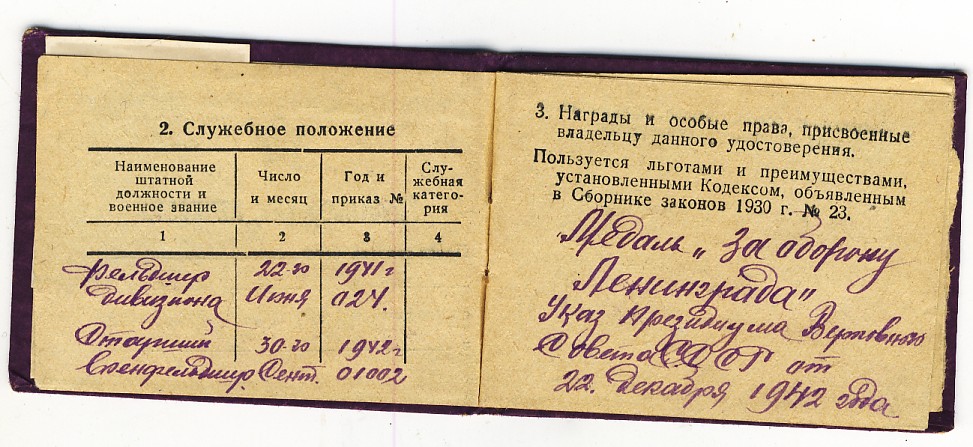 2. Служебное положение
Наименование штатной должности и военное звание | Число и месяц | Год и приказ № | Служебная категория
1 | 2 | 3 | 4
фельдшер 22-го 1941 г
дивизиона Июня 024.
Старший 30-го 1942 г
военфельдшер Сент. 01002
3. Награды и особые права, присвоенные
владельцу данного удостоверения.
Пользуется льготами и преимуществами,
установленными Кодексом, объявленным
в Сборнике законов 1930 г. № 23.
Медаль „За оборону
Ленинграда"
Указ Президиума Верховного
Совета СССР от
22 декабря 1942 года